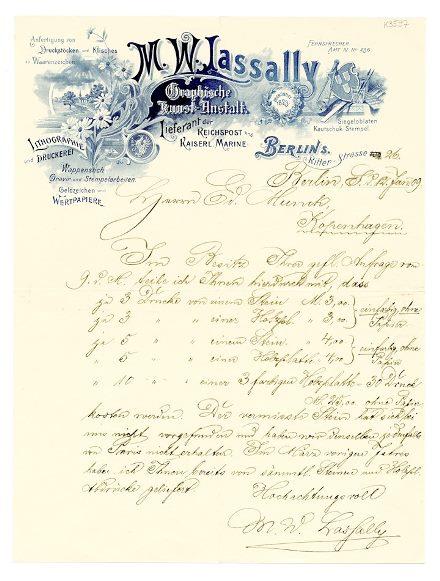 K3557
Anfertigung von
Druckstöcken und Klischés
Waarenzeichen.
M. W. Lassally
Fernsprecher
Amt IV No 436
Graphische
Kunst-Anstalt.
Lieferant der
Reichspost und
Kaiserl. Marine
Siegeloblaten
Kautschuk Stempel.
Lithographie
und Druckerei
Wappenstich
Gravir- und Stempelarbeiten.
Geldzeichen und
Wertpapiere.
Berlin S.
Ritter-Strasse 26.
Berlin, Jan 09
Herrn Ed.
Kopenhagen.
Im Besitz Ihrer gefl. Anfrage von
teile ich Ihnen hierdurch mit, dass
je 3 Drucke von einem Stein M. 3,00
je 3 " " einer Holzpl. " 3,00
einfarbig, ohne Papier
je 5 " " einem Stein " 4,00
" 5 " " einer Holzplatte " 4,00
einfarbig, ohne Papier
" 10 " " einer 3 farbigen Holzplatte - 30 Druck
M. 25,00 ohne Papier
kosten werden. Der vermisste Stein hat sich bei
uns nicht vorgefunden und haben wir denselben
von nicht erhalten. Im März vorigen Jahres
habe ich Ihnen bereits von sämmtl. Steinen und Holzpl.
Abdrücke geliefert.
Hochachtungsvoll
M. W. Lassally